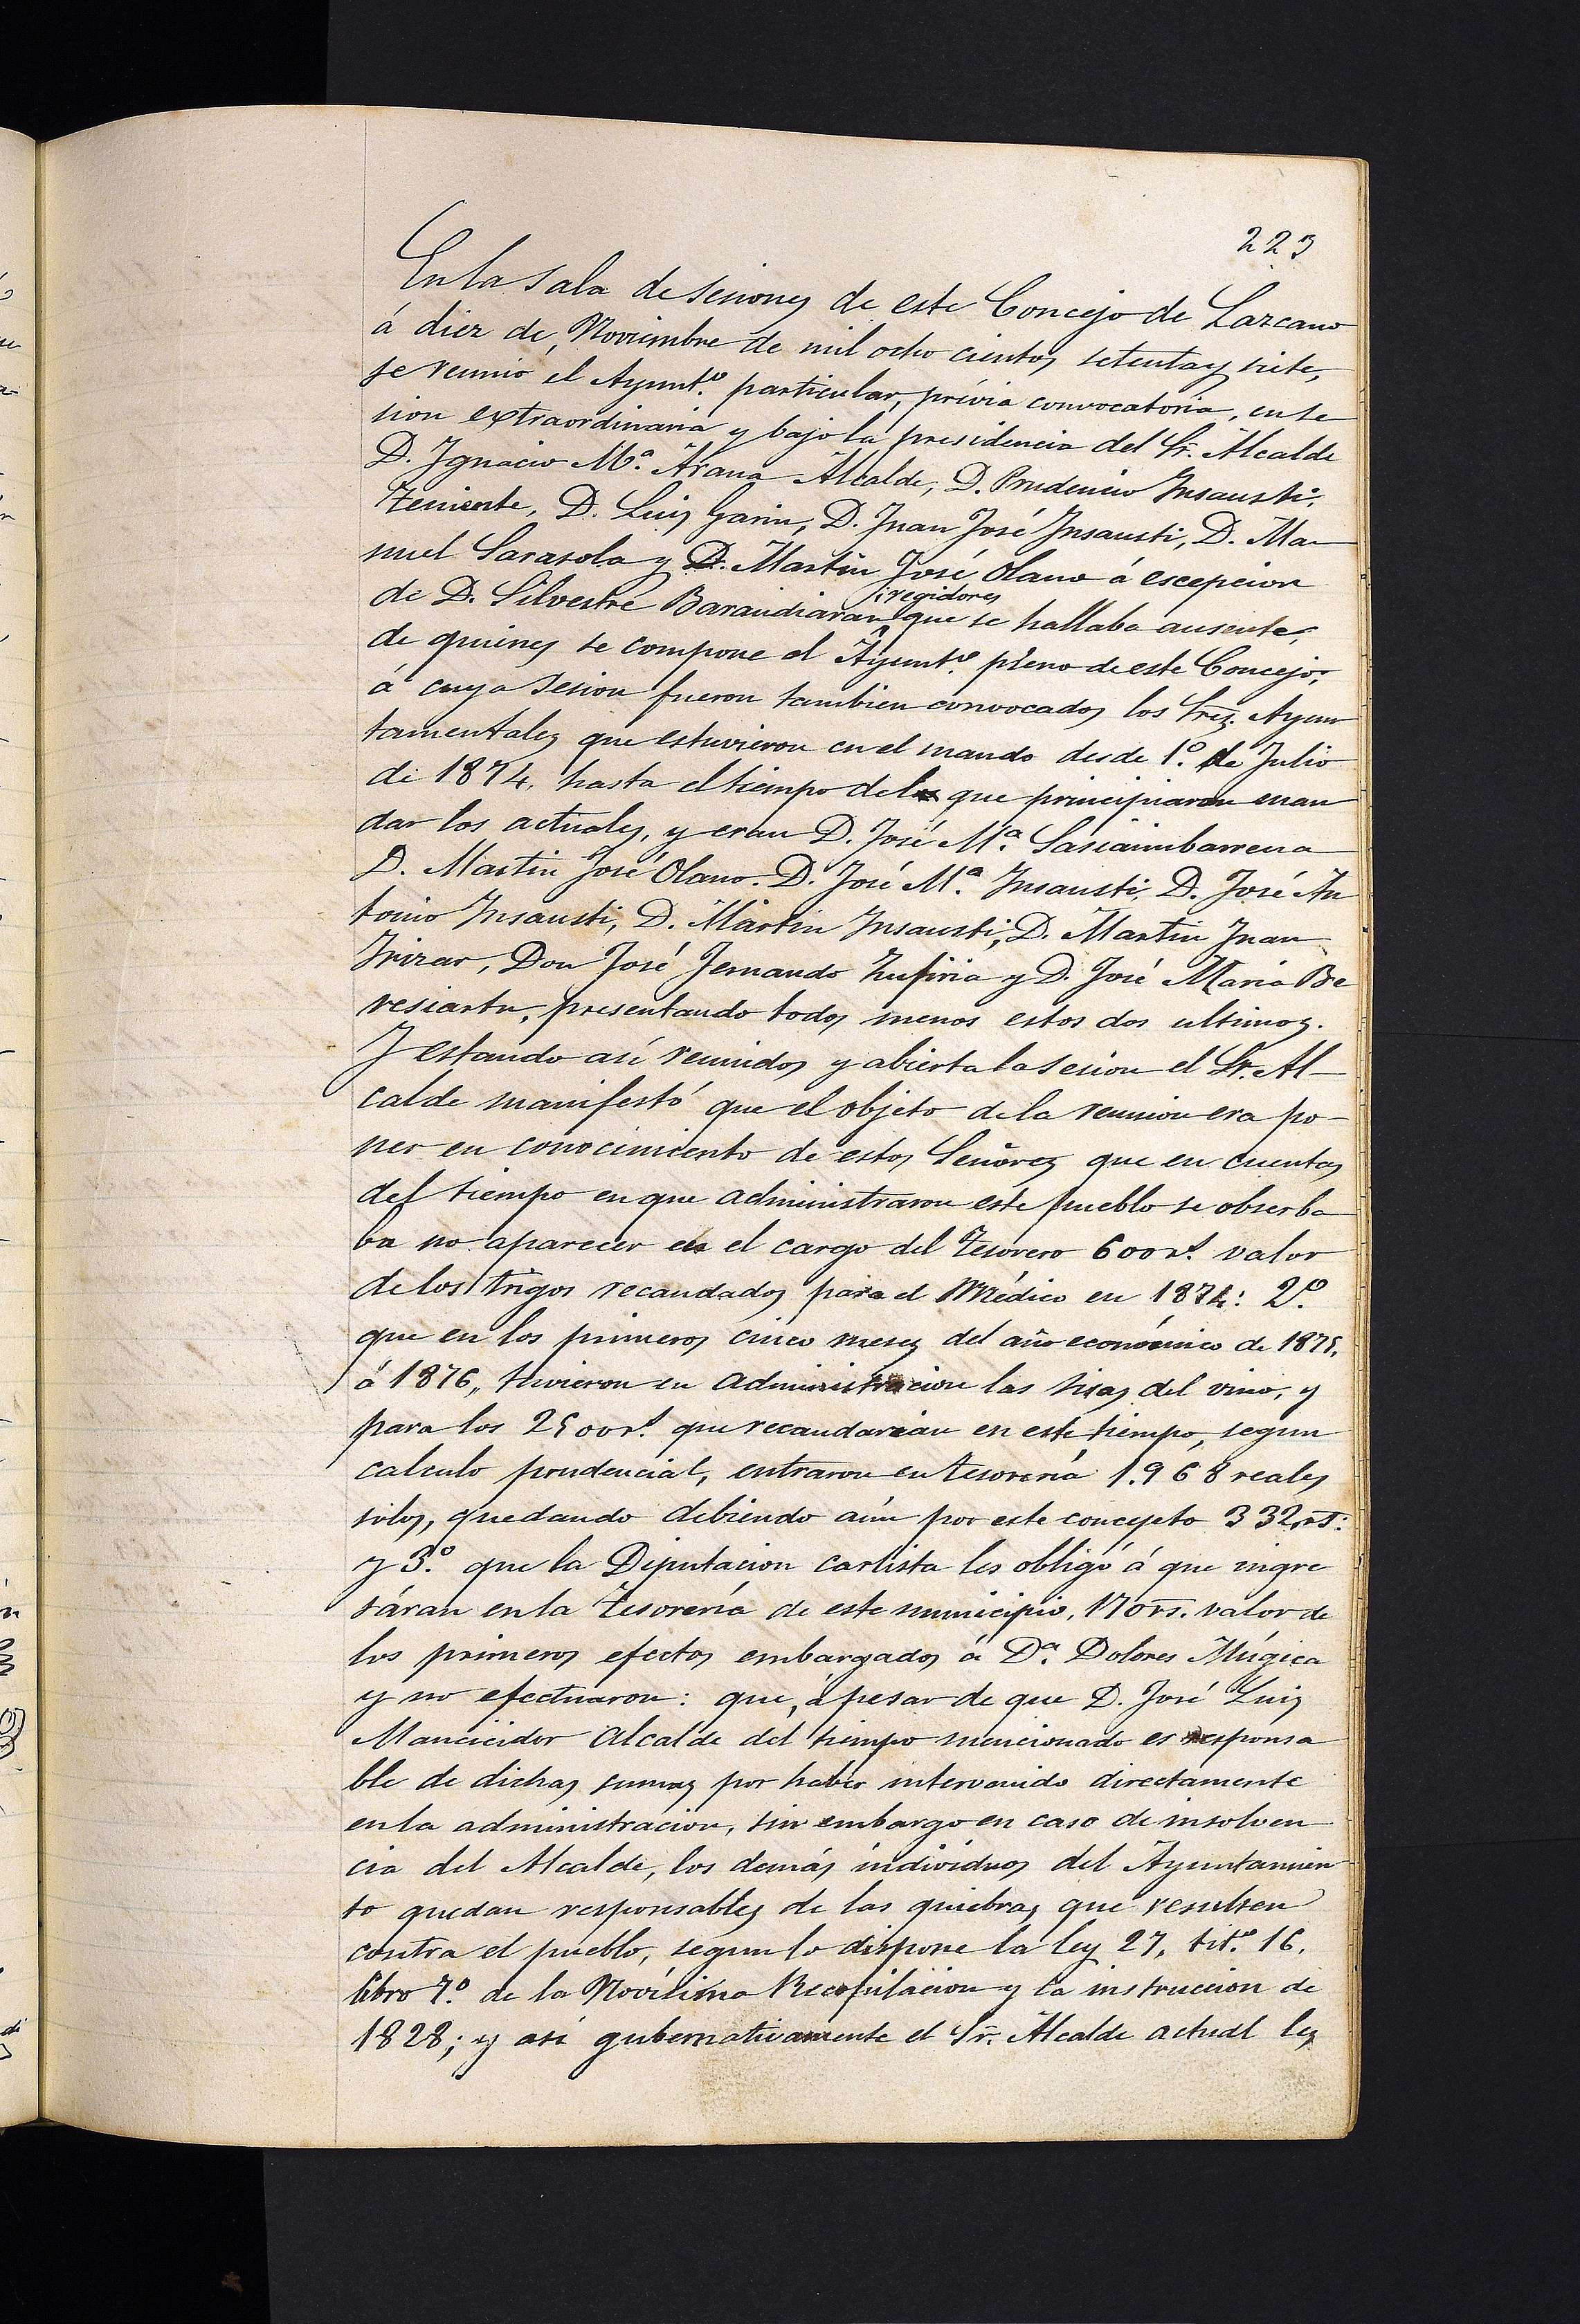 223
En la Sala de Sesiones de este Concejo de Lazcano
á diez de Noviembre de mil ocho cientos setenta y siete,
se reunió el Ayunt.º particular, prévia convocatoria, en se
sion extraordinaria y bajo la presidencia del Sr. Alcalde
D. Ignacio M.ª Arana Alcalde, D. Prudencio Insausti,
Teniente, D. Luis Garin, D. Juan José Insausti, D. Ma-
nuel Sarasola y D. Martin José Olano á escepcion
de D. Silvestre Baraidiaran regidores que se hallaba ausente,
de quienes se compone el Ayunt.º pleno de este Concejo;
á cuya sesion fueron tambien convocados los Sres. Ayun
tamentales que estuvieron en el mando desde 1.º de Julio
de 1874, hasta el tiempo del que principiaron man
dar los actuales, y eran D. José M.ª Sasiaimbarrena
D. Martin José Olano. D. José M.ª Insausti, D. José An
tonio Insausti, D. Martin Insausti, D. Martin Juan
Irizar, Don José Fernando Zufiria y D. José Maria Be
resiartu, presentando todos menos estos dos ultimos.
Y estando así reunidos y abierta la Sesion el Sr. Al-
calde manifestó que el objeto de la reunion era po-
ner en conocimiento de estos Señores que en cuentas
del tiempo en que administraron este pueblo se obserba
ba no aparecer en el cargo del Tesorero 600 rs. valor
de los trigos recaudados para el Médico en 1874: 2.º
que en los primeros cinco meses del año económico de 1875,
á 1876,, tuvieron en Administracion las sisas del vino, y
para los 2500 rs. que recaudarian en este tiempo, segun
calculo prudencial, entraron en tesoreria 1.968 reales
solos, quedando debiendo aún por este concepto 332 rs.:
y 3.º que la Diputacion carlista les obligó á que ingre
sáran en la Tesorería de este municipio, 170 rs. valor de
los primeros efectos embargados á D.ª Dolores Múgica
y no efectuaron: que, á pesar de que D. José Luis
Mancicidor Alcalde del tiempo mencionado es responsa
ble de dichas sumas por haber intervenido directamente
en la administracion, sin embargo en caso de insolven
cia del Alcalde, los demás individuos del Ayuntamien
to quedan responsables de las quiebras que resulten
contra el pueblo, segun lo dispone la ley 27, tit.º 16,
libro 7.º de la Novísima Recopilacion y la instruccion de
1828; y así gubernativamente el Sr. Alcalde actual les